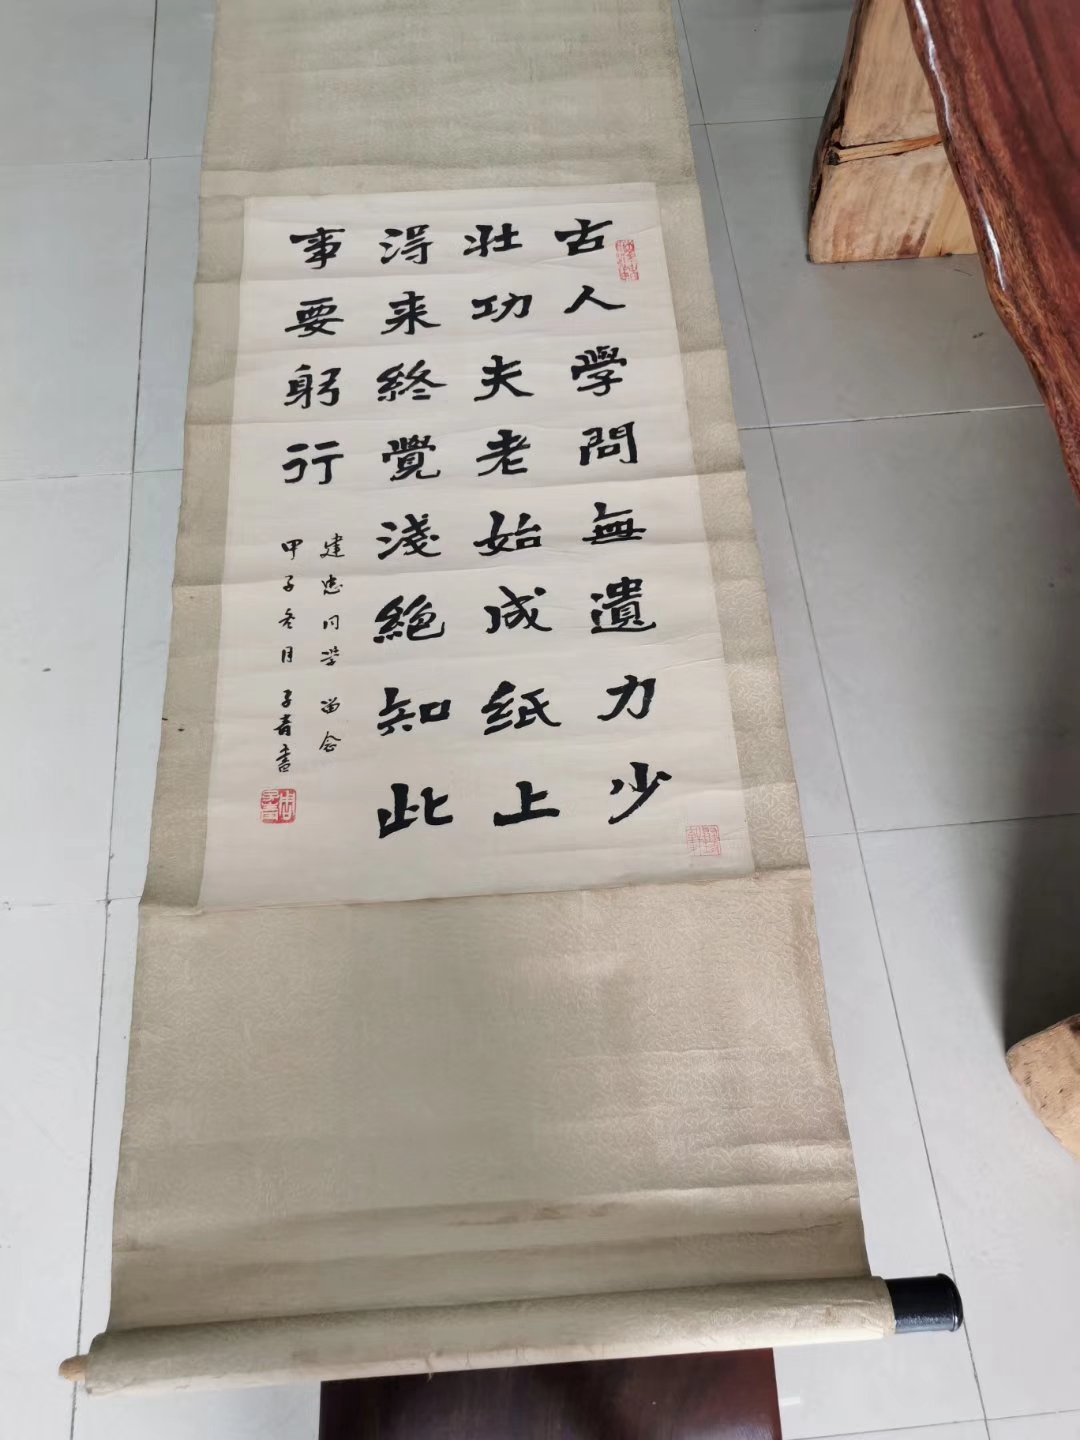 古人學問無遺力少
壯功夫老始成紙上
淂来終覺淺絕知此
事要躬行
建忠同学留念
甲子冬月子青書